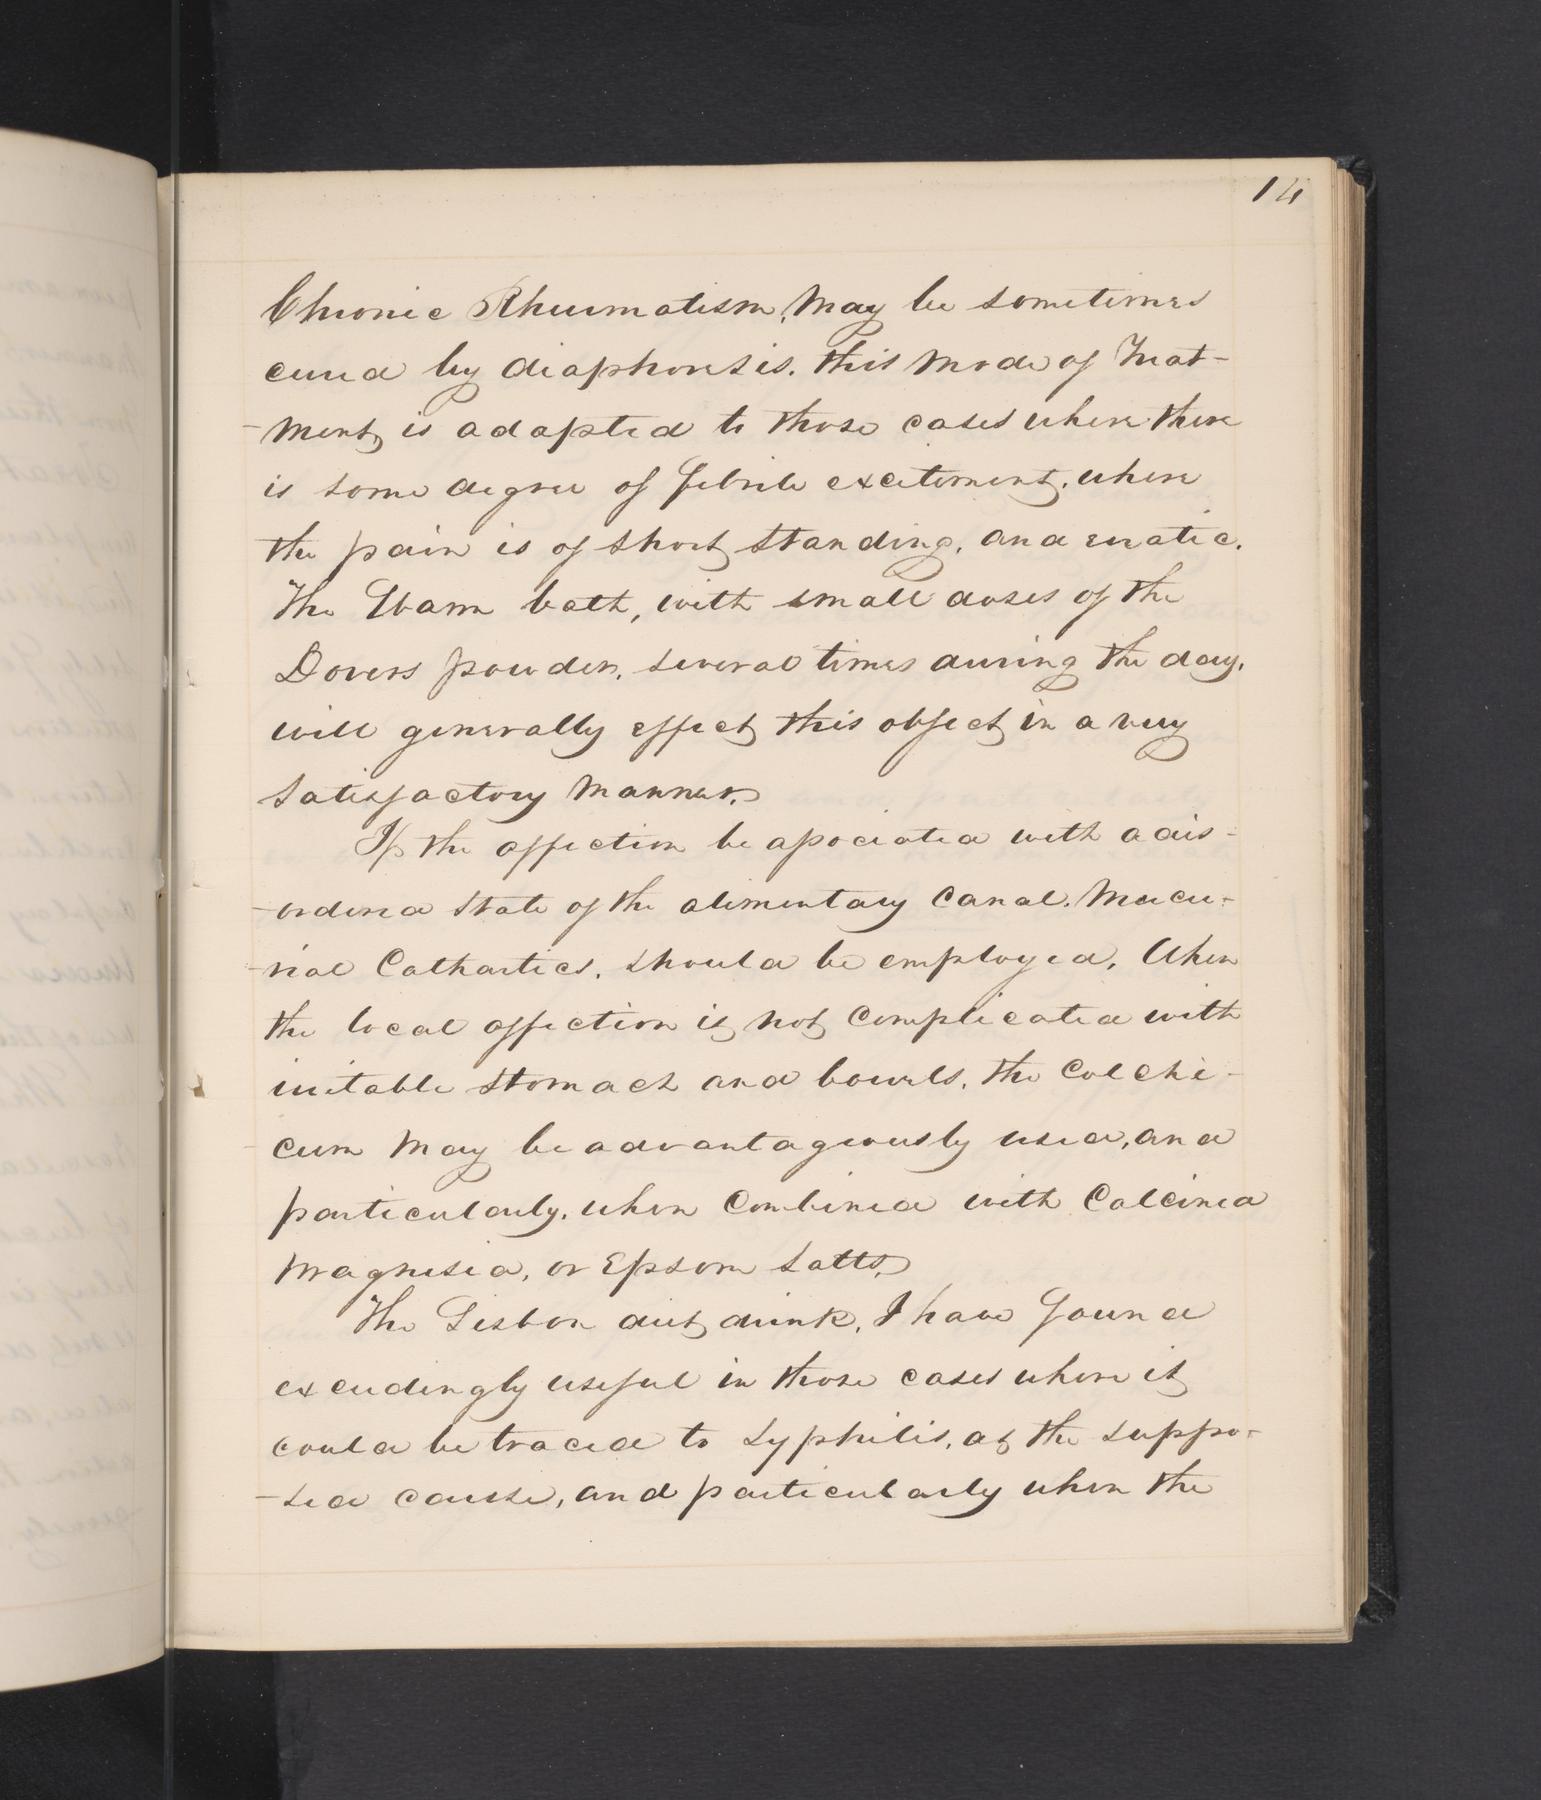 14
Chronic Rheumatism, May be sometimes
cured by diaphoresis. this mode of Treat-
-ment, is adapted to those cases where there
is some degree of febrile excitement, where
the pain is of short standing, and erratic.
The Warm bath, with small doses of the
Dovers powder, several times during the day,
will generally effect this object in a very
satisfactory manner.
If the affection be associated with a dis-
-ordered state of the alimentary Canal. Mercu-
-rial Cathartics, should be employed, When
the local affection is not complicated with
irritable stomach and bowels, the Colchi-
cum May be advantageously used, and
particularly, when Combined with Calcined
Magnesia, or Epsom Salts.
The Lisbon diet drink, I have found
exceedingly useful in those cases where it
could be traced to Syphilis, as the suppo-
-sed cause, and particularly when the